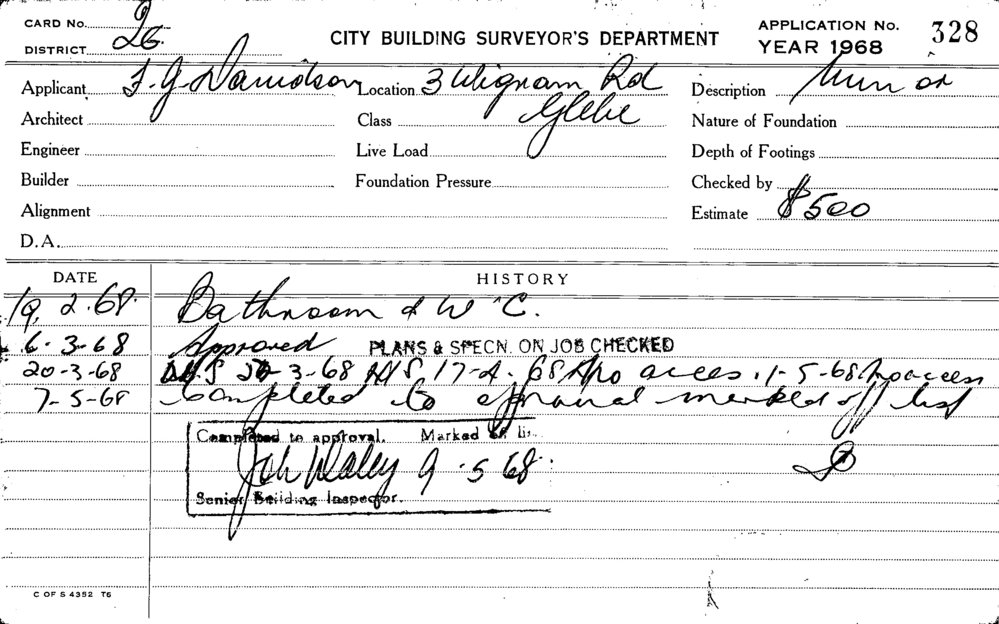 CARD No.
DISTRICT 26.
CITY BUILDING SURVEYOR'S DEPARTMENT
APPLICATION No. 328
YEAR 1968
Applicant F. G. Davidson Location 3 Wigram Rd Description Minor
Architect Class Glebe Nature of Foundation
Engineer Live Load Depth of Footings
Builder Foundation Pressure Checked by
Alignment Estimate $500
D.A.
DATE HISTORY
19.2.68. Bathroom & W C.
6-3-68 Approved PLANS & SPECN. ON JOB CHECKED
20-3-68 3-68 17-4-68 No acces. 1-5-68 No access
7-5-68 Completed to approval marked off list
Completed to approval. Marked off li
9.5.68.
Senior Building Inspector.
C OF S 4352 T6